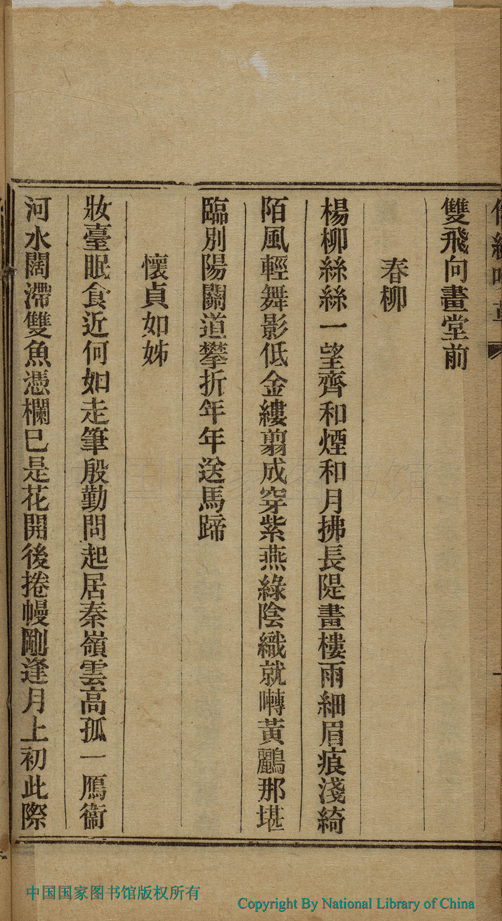 雙飛向畫堂前
春柳
楊柳絲絲一望齊和煙和月拂長隄畫樓雨細眉痕淺綺
陌風輕舞影低金縷翦成穿紫燕綠陰織就囀黃鸝那堪
臨別陽關道攀折年年送馬蹄
懷貞如姊
妝臺眠食近何如走筆殷勤問起居秦嶺雲高孤一鴈衡
河水闊滯雙魚憑欄已是花開後捲幔剛逢月上初此際
中国国家图书馆版权所有
Copyright By National Library of China